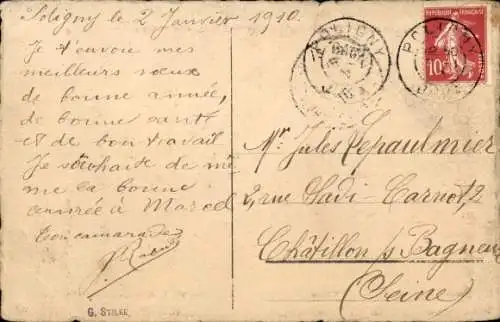 Poligny le 2 Janvier 1910.
Je t'envoie mes
meilleurs vœux
de bonne année,
de bonne santé
et de bon travail
Je souhaite de mê
me la bonne
année à Marcel
Ton camarade
G. STILKE
POLIGNY
POLIGNY
JURA
REPUBLIQUE FRANÇAISE
10c
Mr Jules Lepaulmier
2, rue Sadi-Carnot, 2
Châtillon s/s Bagneux
(Seine)